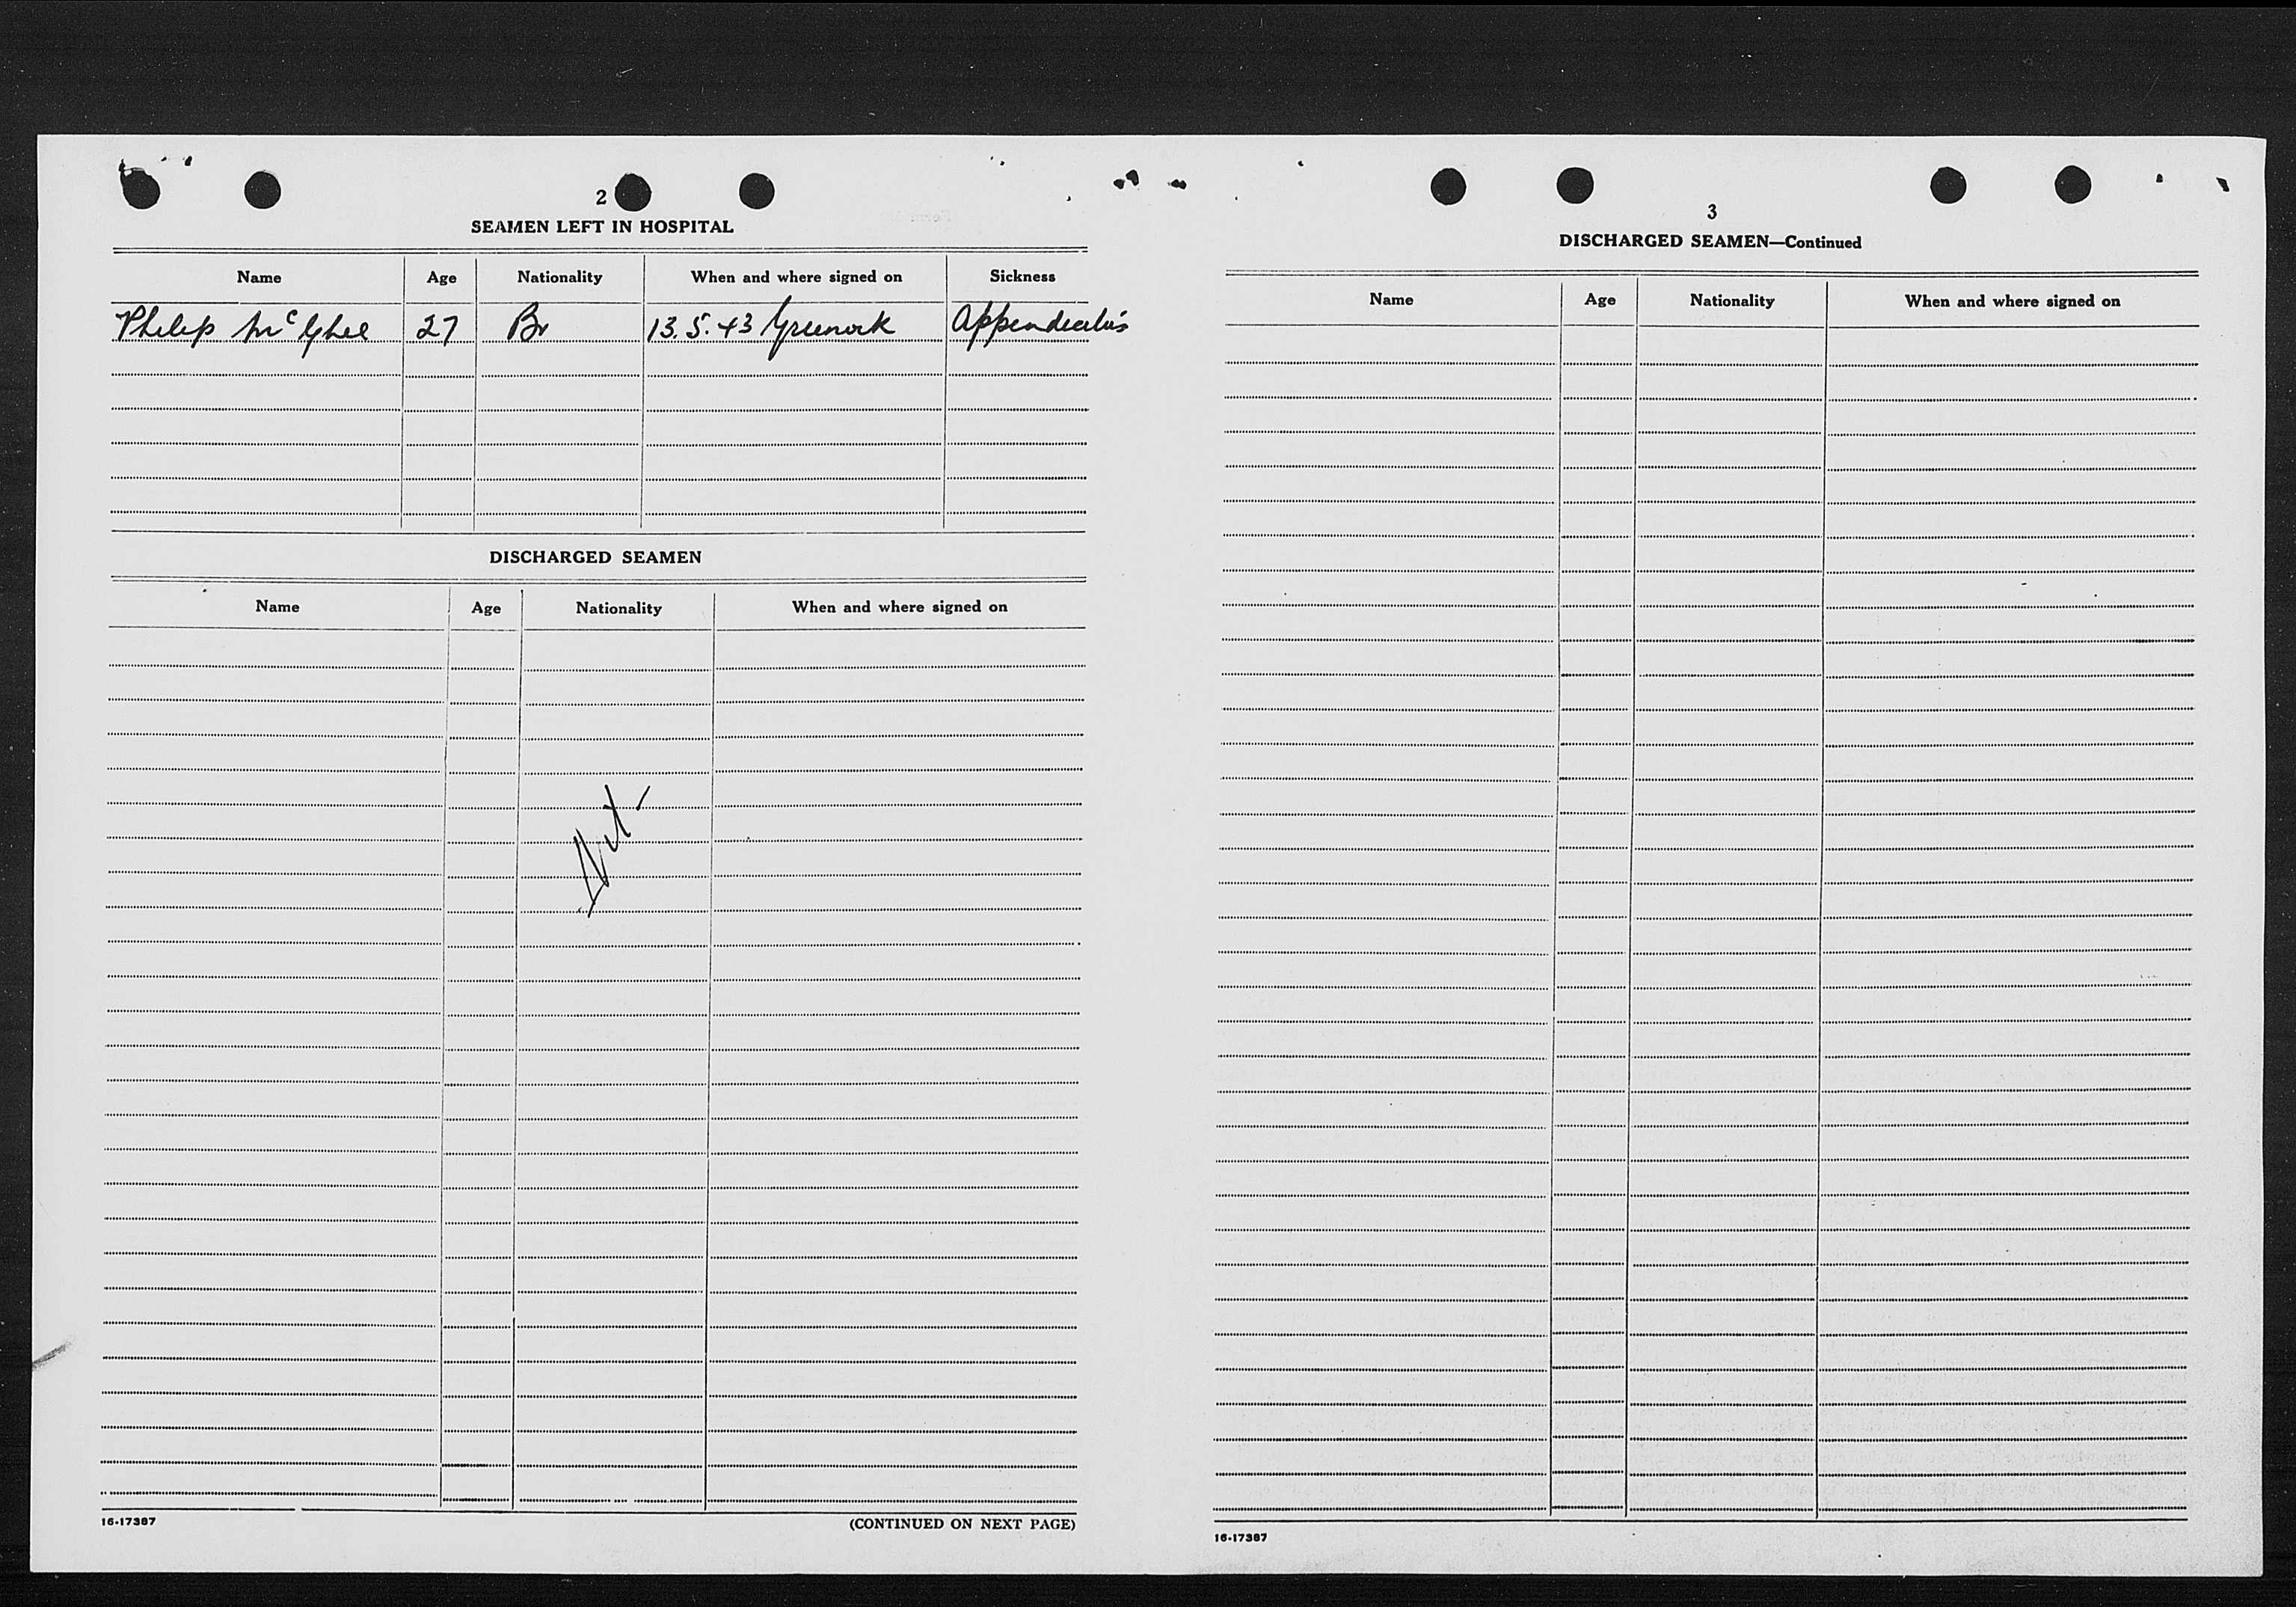 2
SEAMEN LEFT IN HOSPITAL
Name Age Nationality When and where signed on Sickness
Philip McGhee 27 Br 13.5.43 Greenock Appendicitis
DISCHARGED SEAMEN
Name Age Nationality When and where signed on
16-17387
(CONTINUED ON NEXT PAGE)
3
DISCHARGED SEAMEN—Continued
Name Age Nationality When and where signed on
16-17387